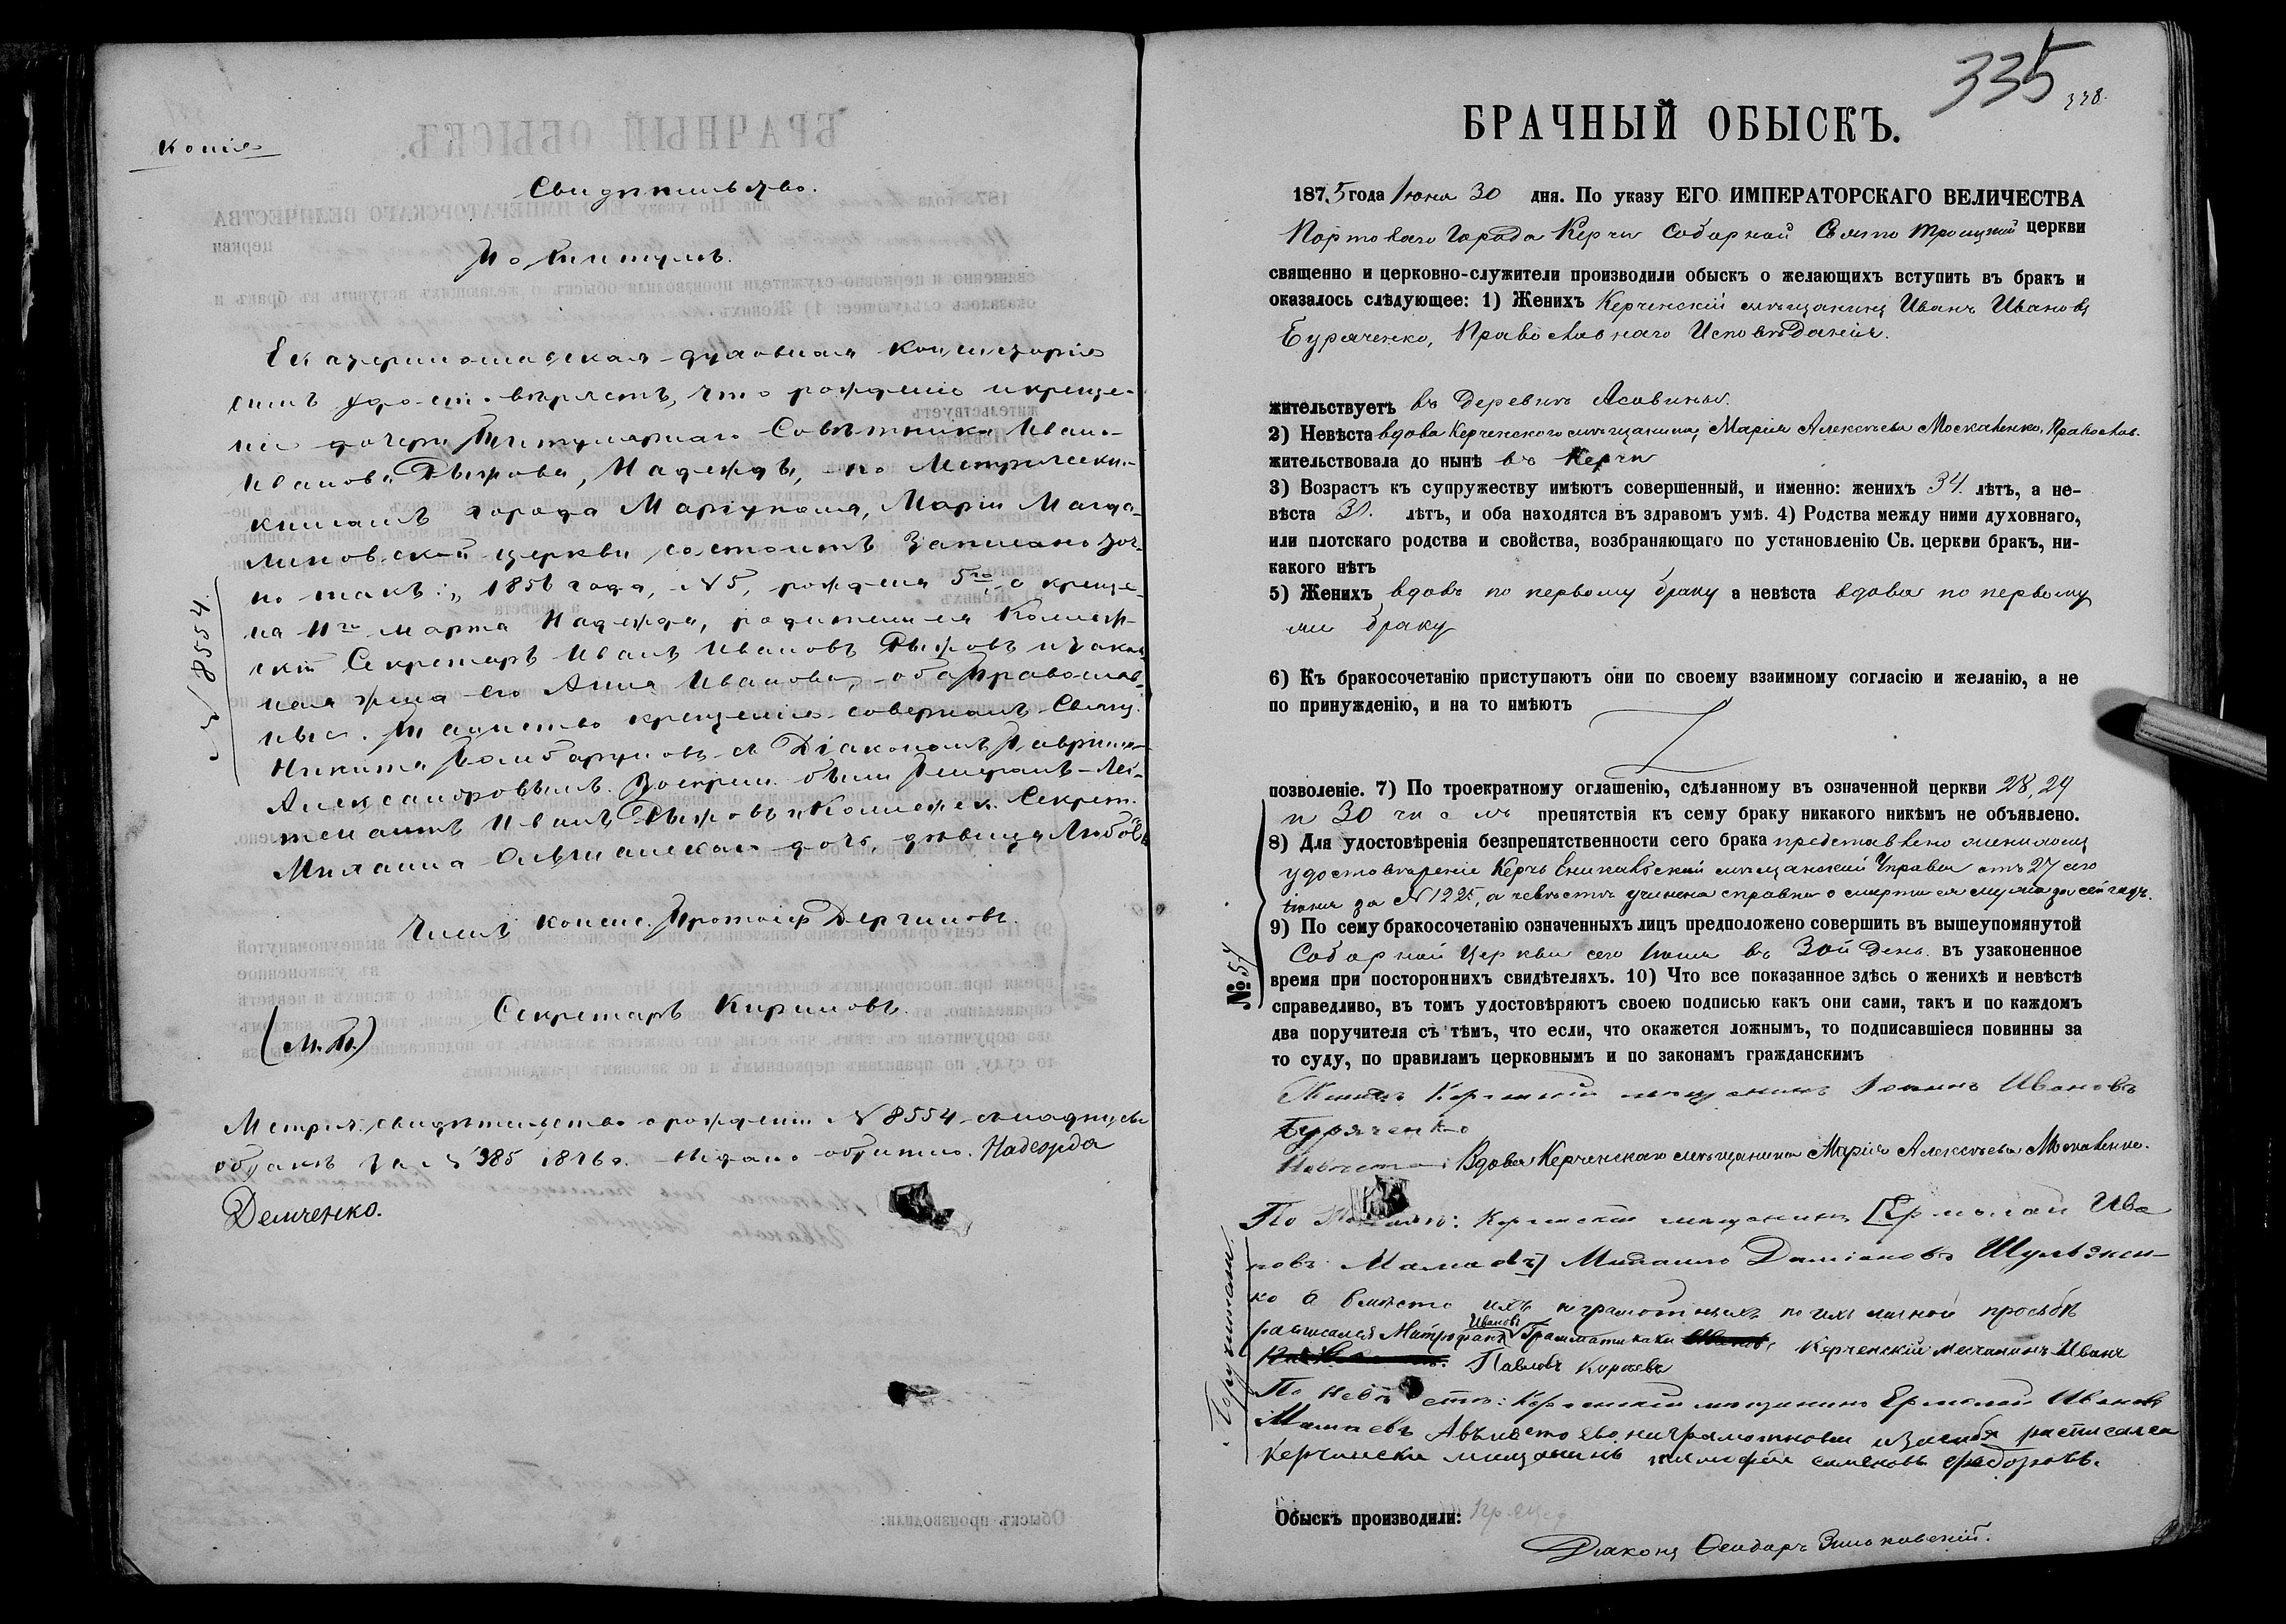 Копія
Свидѣтельство.
По титулѣ.
Екатеринославская духовная Консисторія
симъ удостовѣряетъ, что рожденіе и креще-
ніе дочери Титулярнаго Совѣтника Ивана
Иванова Рыжова, Надежды, по Метрическимъ
книгамъ города Маріуполя, Маріи Магда-
линовской церкви состоитъ записано точ-
но такъ: „1856 года, №5, рождена 5го, а креще-
на 11го марта Надежда, родители ея Коллеж-
скій Секретарь Иванъ Ивановъ Рыжовъ и закон-
ная жена его Анна Иванова, оба православ-
ные. Таинство крещенія совершалъ Свящ.
Никита съ Діакономъ Гавріиломъ
Александровымъ. Воспріем. были Генералъ-Лей-
тенантъ Иванъ Рыжовъ и Коллежск. Секрет.
Михаила дочь, дѣвица Любовь
Членъ консис. Протоіер. Дергановъ.
Секретарь Кириловъ.
(М.П.)
№ 8554.
Метрич. свидѣтельство о рожденіи № 8554 съ надписью
о бракѣ за № 385 1876 г. выдано обратно. Надежда
Демченко.
335
338.
БРАЧНЫЙ ОБЫСКЪ.
1875 года Іюня 30 дня. По указу ЕГО ИМПЕРАТОРСКАГО ВЕЛИЧЕСТВА
Портоваго Города Керчи Соборной Свято Троицкой церкви
священно и церковно-служители производили обыскъ о желающихъ вступить въ бракъ и
оказалось слѣдующее: 1) Женихъ Керченскій мѣщанинъ Иванъ Ивановъ
Буряченко, Православнаго Исповѣданія.
жительствуетъ въ Деревнѣ Асавиной.
2) Невѣста вдова Керченскаго мѣщанина, Марія Алексѣева Москаленко, Православ.
жительствовала до нынѣ въ Керчи
3) Возрастъ къ супружеству имѣютъ совершенный, и именно: женихъ 34 лѣтъ, а не-
вѣста 31. лѣтъ, и оба находятся въ здравомъ умѣ. 4) Родства между ними духовнаго,
или плотскаго родства и свойства, возбраняющаго по установленію Св. церкви бракъ, ни-
какого нѣтъ
5) Женихъ вдовъ по первому браку а невѣста вдова по первому
же браку
6) Къ бракосочетанію приступаютъ они по своему взаимному согласію и желанію, а не
по принужденію, и на то имѣютъ
позволеніе. 7) По троекратному оглашенію, сдѣланному въ означенной церкви 28, 29
и 30 числъ препятствія къ сему браку никакого никѣмъ не объявлено.
8) Для удостовѣренія безпрепятственности сего брака представлено женихомъ
удостовѣреніе Керчь Еникальской мѣщанской Управы отъ 27 сего
Іюня за № 1225, а невѣстѣ учинена справка о смерти ея мужа за сей годъ.
9) По сему бракосочетанію означенныхъ лицъ предположено совершить въ вышеупомянутой
Соборной Церкви сего Іюня въ 30й День. въ узаконенное
время при постороннихъ свидѣтеляхъ. 10) Что все показанное здѣсь о женихѣ и невѣстѣ
справедливо, въ томъ удостовѣряютъ своею подписью какъ они сами, такъ и по каждомъ
два поручителя съ тѣмъ, что если, что окажется ложнымъ, то подписавшіеся повинны за
то суду, по правиламъ церковнымъ и по законамъ гражданскимъ
№ 57
Женихъ Керченскій мѣщанинъ Іоаннъ Ивановъ
Буряченко
Невѣста: Вдова Керченскаго мѣщанина Марія Алексѣева Москаленко.
Поручители.
По женихѣ: Керченскій мѣщанинъ [Ермолай Ива
новъ Мамаевъ] Михаилъ Даміановъ Шульжен-
ко а вмѣсто ихъ неграмотныхъ по ихъ личной просьбѣ
расписался Митрофанъ Ивановъ Грамматикаки Керченскій мещанинъ Иванъ
Павловъ Кораевъ
По невѣстѣ: Керченскій мѣщанинъ Ермолай Ивановъ
Мамаевъ Авъместо ево ниграмотнови расписался
Керчински мищанинъ Тимофеи симіоновъ федоровъ.
Обыскъ производили:
Діаконъ Ѳеодоръ Зиньковскій.